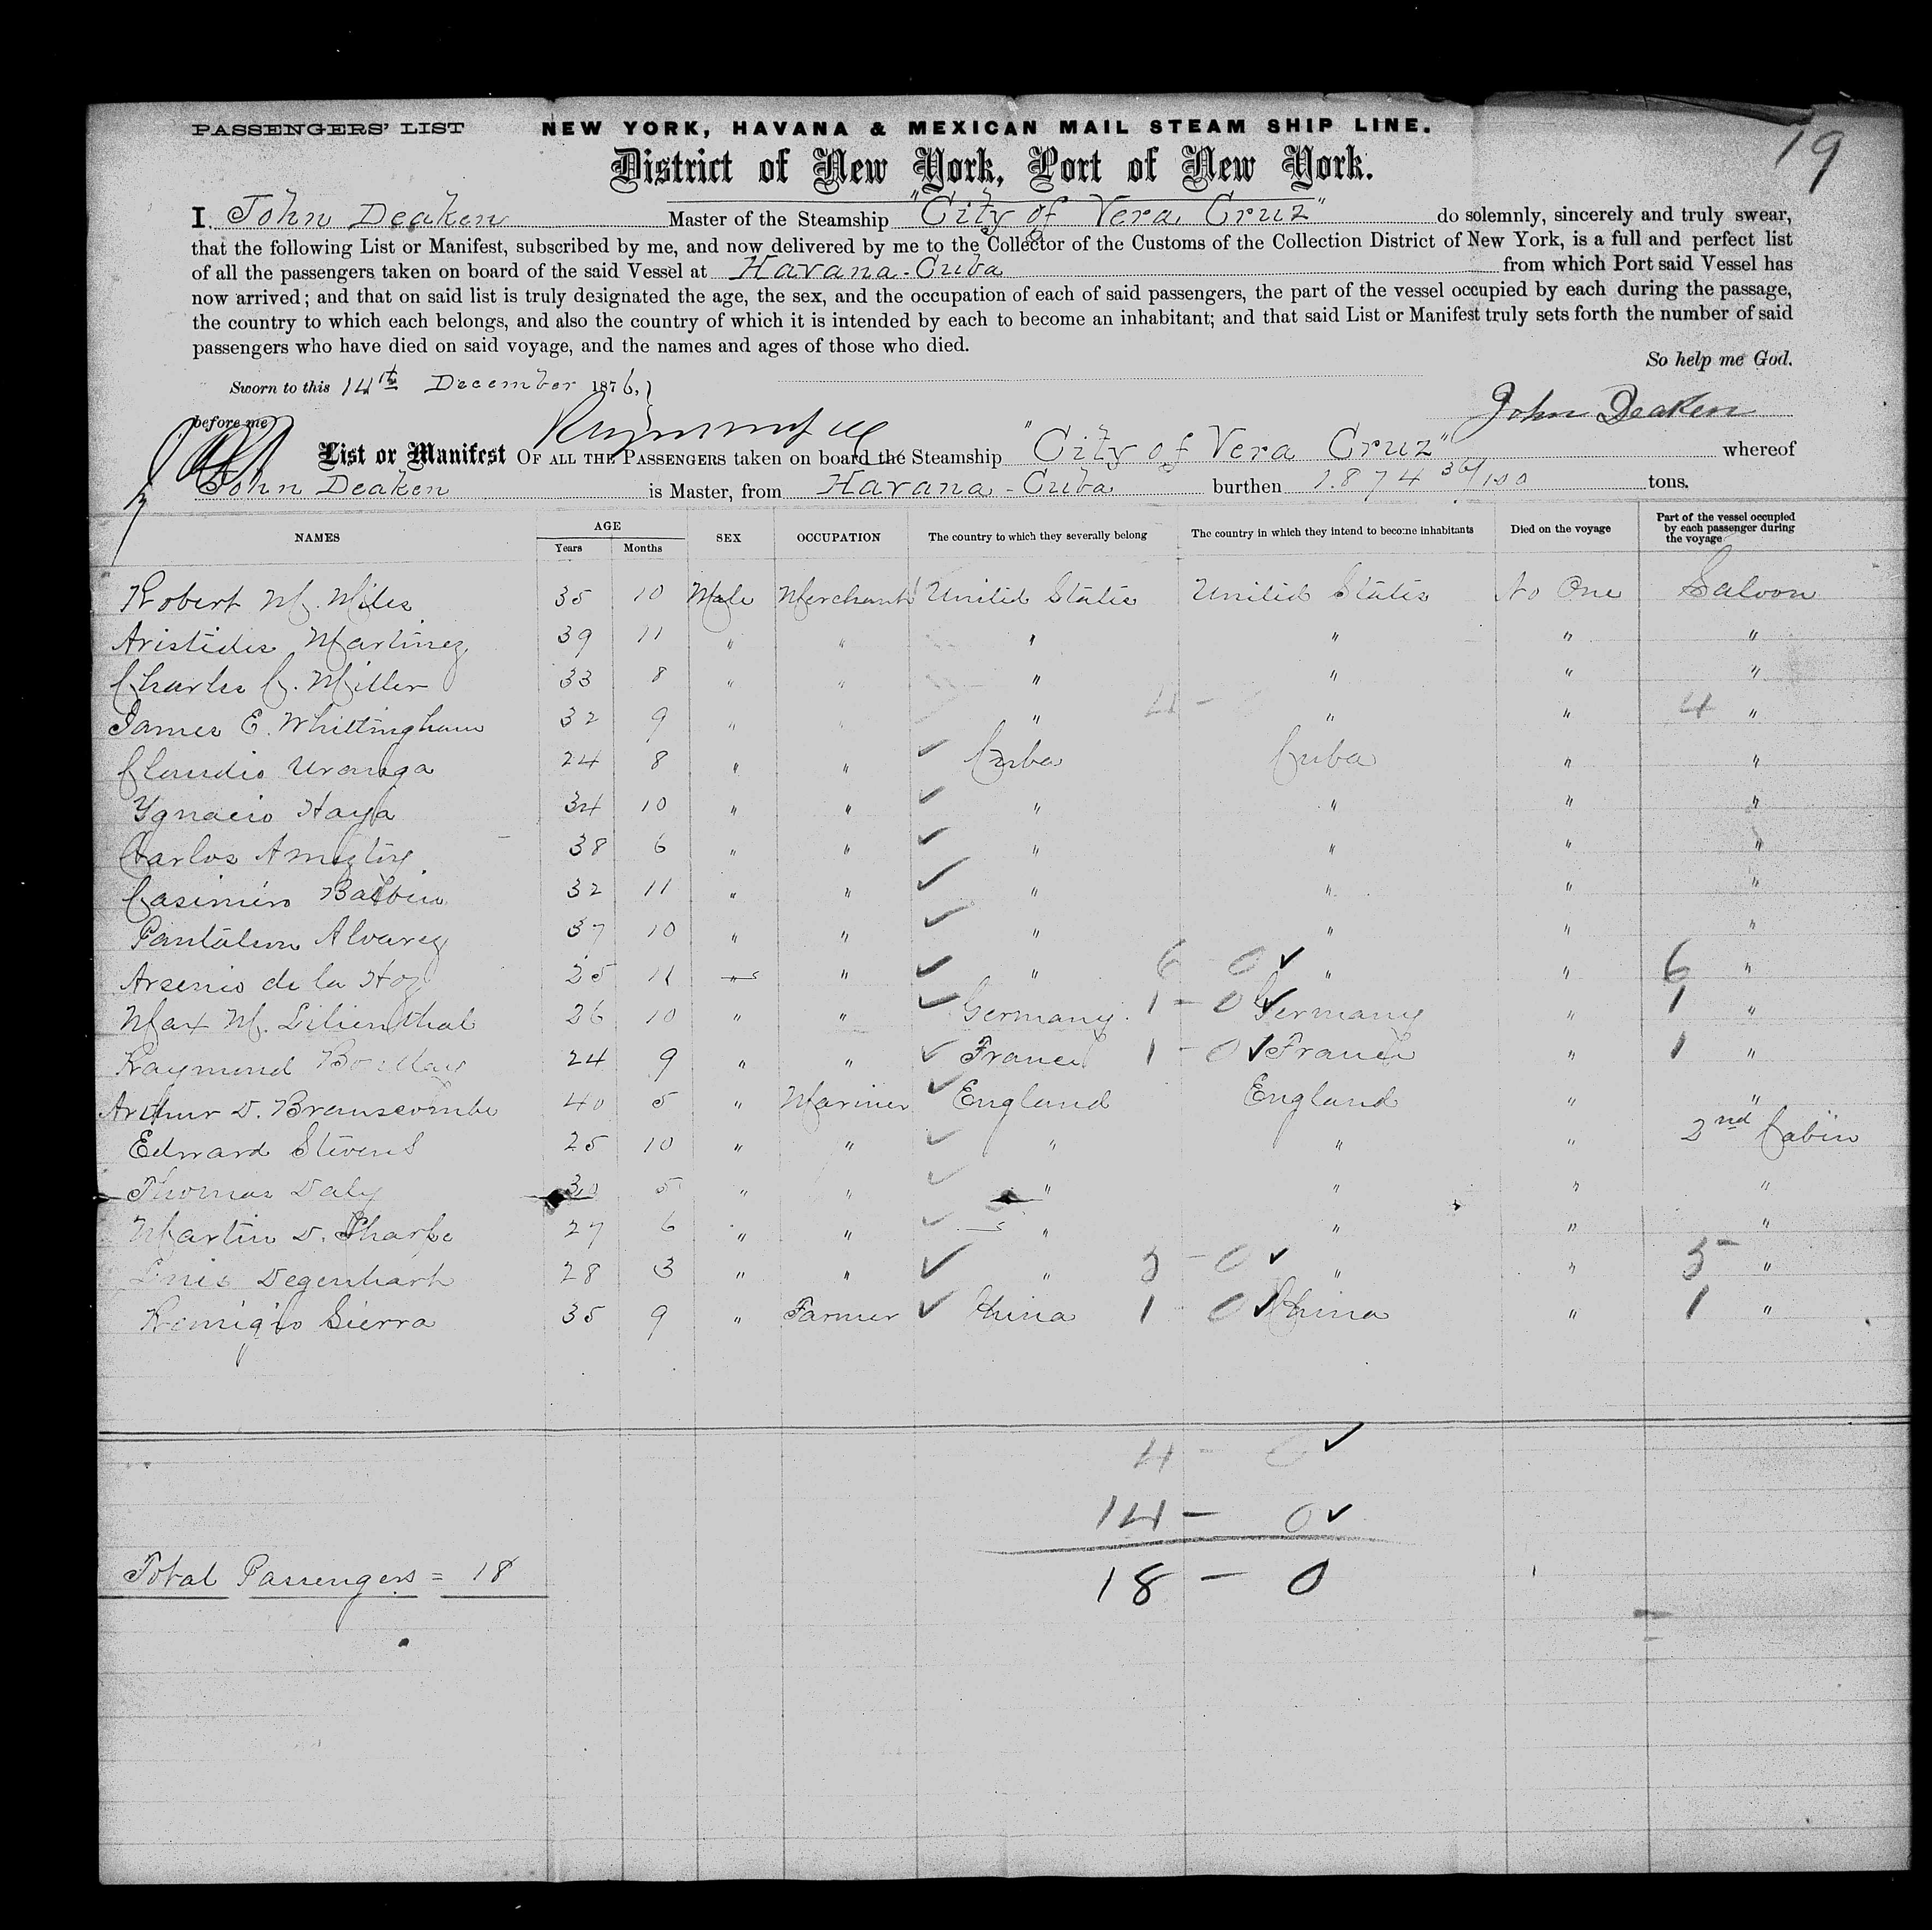 PASSENGERS' LIST NEW YORK, HAVANA & MEXICAN MAIL STEAM SHIP LINE. 19
District of New York, Port of New York.
I. John Deaken Master of the Steamship "City of Vera Cruz" do solemnly, sincerely and truly swear,
that the following List or Manifest, subscribed by me, and now delivered by me to the Collector of the Customs of the Collection District of New York, is a full and perfect list
of all the passengers taken on board of the said Vessel at Havana-Cuba from which Port said Vessel has
now arrived; and that on said list is truly designated the age, the sex, and the occupation of each of said passengers, the part of the vessel occupied by each during the passage,
the country to which each belongs, and also the country of which it is intended by each to become an inhabitant; and that said List or Manifest truly sets forth the number of said
passengers who have died on said voyage, and the names and ages of those who died.
So help me God.
Sworn to this 14th December 1876,
before me John Deaken
List or Manifest OF ALL THE PASSENGERS taken on board the Steamship "City of Vera Cruz" whereof
John Deaken is Master, from Havana-Cuba burthen 1.874 36/100 tons.
NAMES AGE Years Months SEX OCCUPATION The country to which they severally belong The country in which they intend to become inhabitants Died on the voyage Part of the vessel occupied by each passenger during the voyage
Robert M. Miles 35 10 Male Merchant United States United States No One Saloon
Aristides Martinez 39 11 " " " " " "
Charles C. Miller 33 8 " " " " " "
James E. Whittingham 32 9 " " " 4 - " " 4 "
Claudio Uranga 24 8 " " ✓ Cuba Cuba " "
Ygnacio Haya 34 10 " " ✓ " " " "
Carlos 38 6 " " ✓ " " " "
Casimiro Balbin 32 11 " " ✓ " " " "
Pantaleon Alvarez 37 10 " " ✓ " " " "
Arsenio de la Hoz 25 11 " " ✓ " 6 0 ✓ " " 6 "
Max M. Lilienthal 26 10 " " ✓ Germany. 1 - 0 ✓ Germany " 1 "
Raymond 24 9 " " ✓ France 1 - 0 ✓ France " 1 "
Arthur D. Branscombe 40 5 " Mariner ✓ England England " "
Edward Stevens 25 10 " " ✓ " " " 2nd Cabin
Thomas Daly 30 5 " " ✓ " " " "
Martin D. Sharpe 27 6 " " ✓ " " " "
Luis Degenhart 28 3 " " ✓ " 5 - 0 ✓ " " 5 "
Remigio Sierra 35 9 " Farmer ✓ China 1 0 ✓ China " 1 "
4 - 0 ✓
14 - 0 ✓
Total Passengers = 18 18 - 0